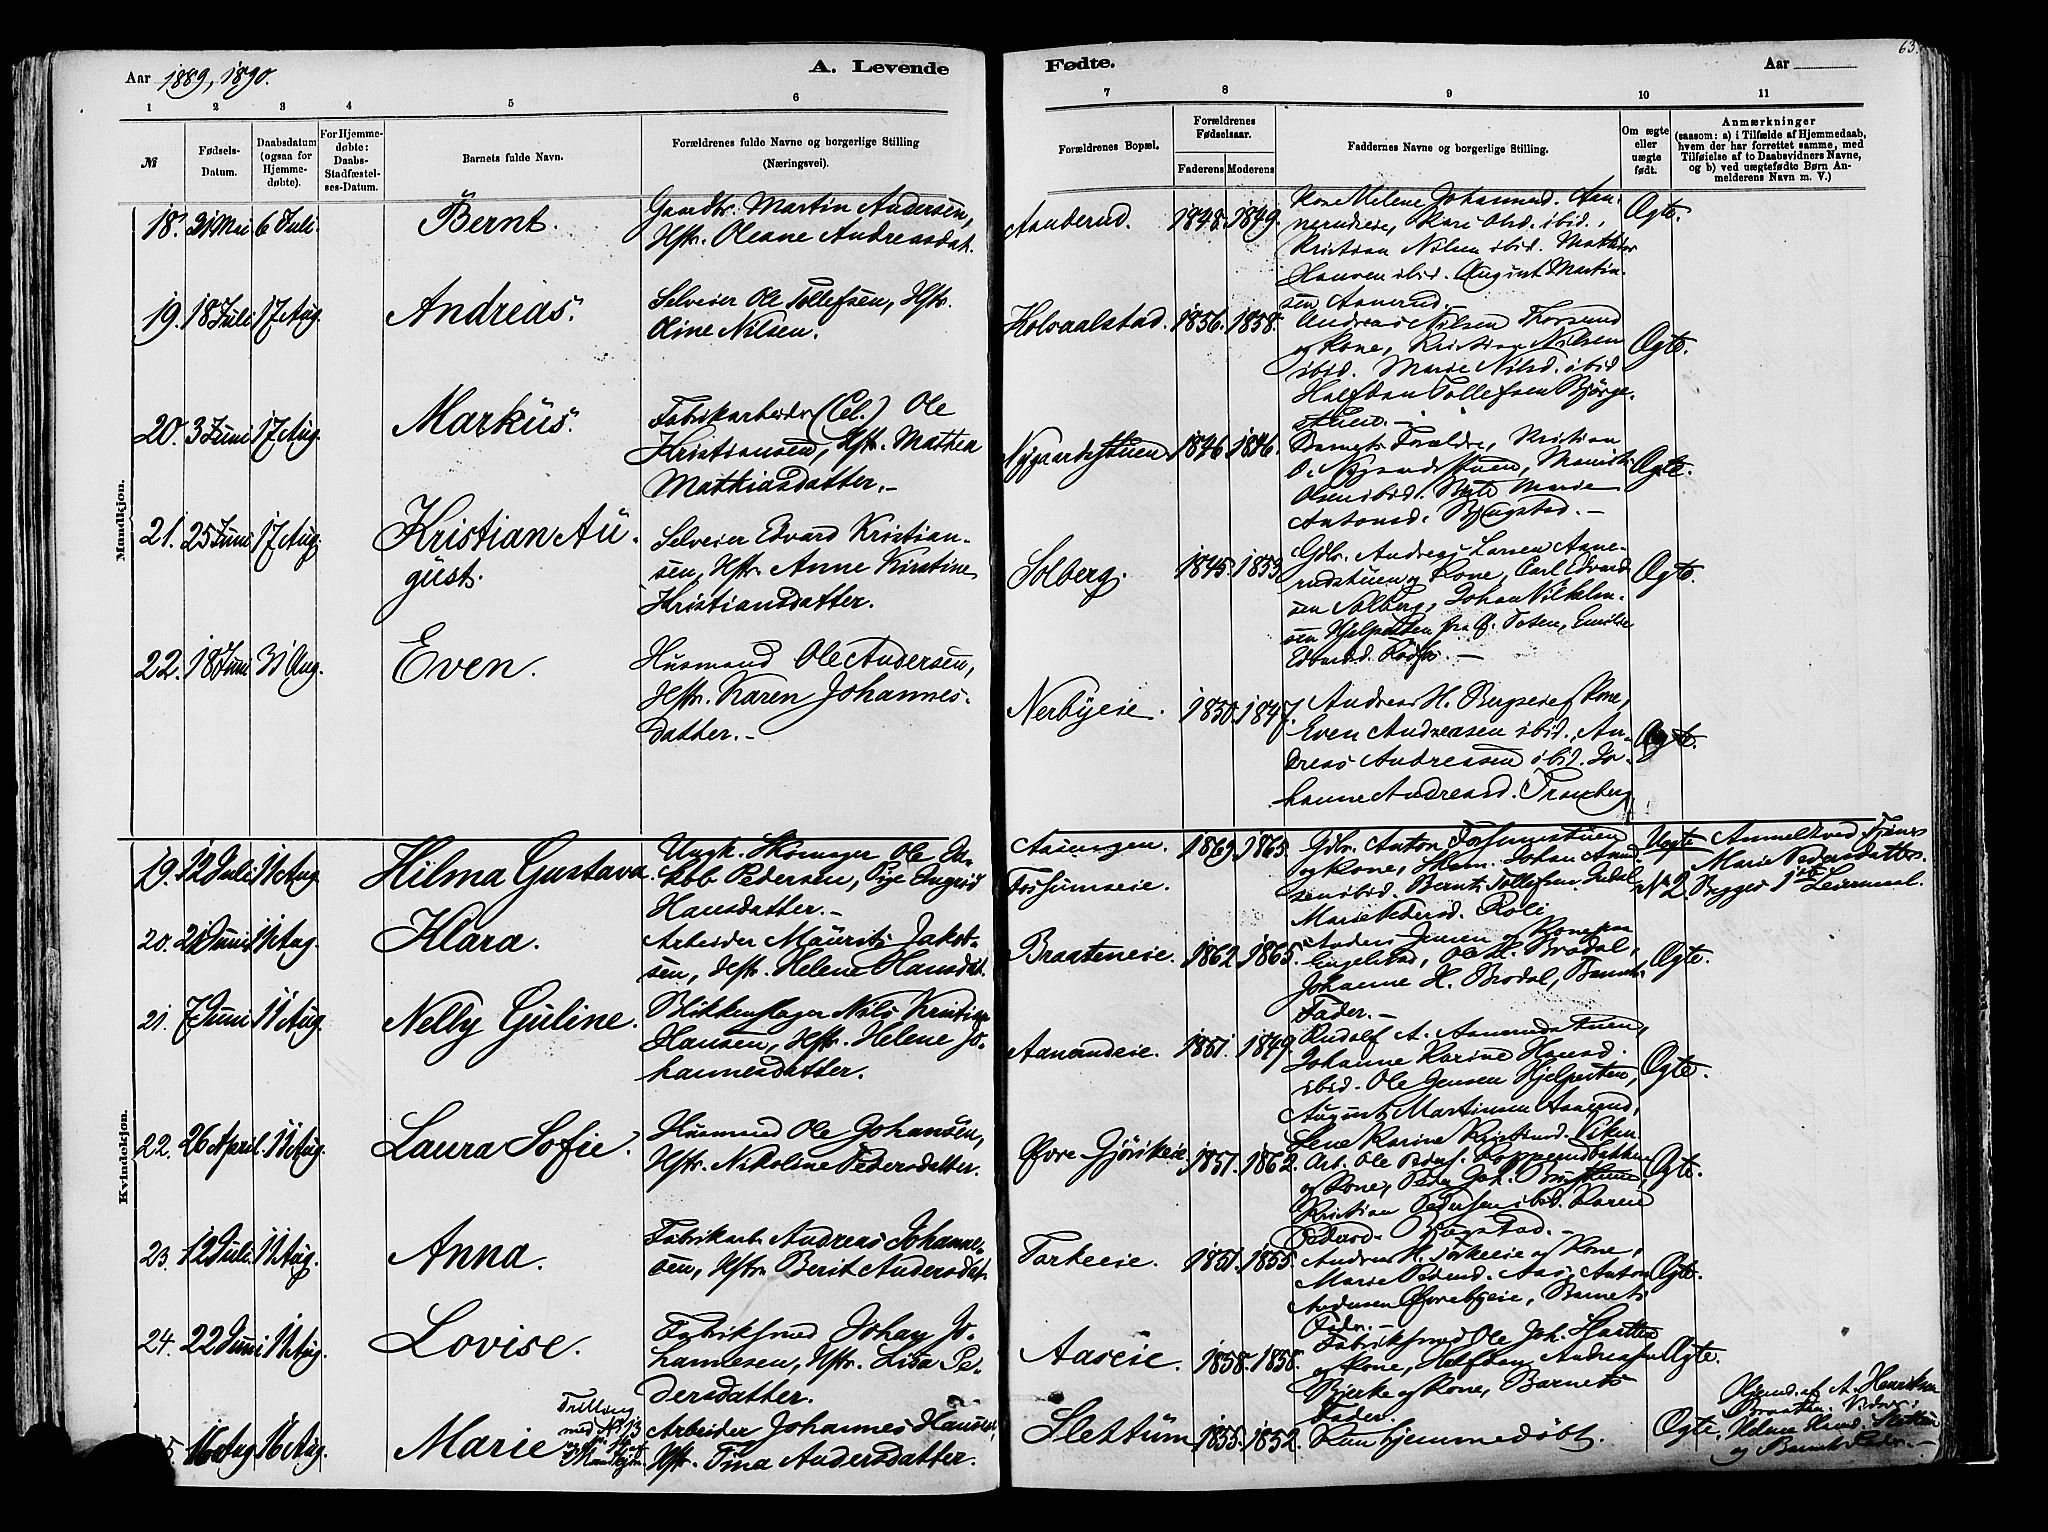 63.
Aar 1889, 1890.
A. Levende
Fødte.
Aar
1 2 3 4 5 6 7 8 9 10 11
№
Fødsels-
Datum.
Daabsdatum
(ogsaa for
Hjemme-
døbte).
For Hjemme-
døbte:
Daabs-
Stadfæstel-
ses-Datum.
Barnets fulde Navn.
Forældrenes fulde Navne og borgerlige Stilling
(Næringsvei).
Forældrenes Bopæl.
Forældrenes
Fødselsaar.
Faderens
Moderens
Faddernes Navne og borgerlige Stilling.
Om ægte
eller
uægte
født.
Anmærkninger
(saasom: a) i Tilfælde af Hjemmedaab,
hvem der har forrettet samme, med
Tilføielse af to Daabsvidners Navne,
og b) ved uægtefødte Børn An-
melderens Navn m. V.)
Mandkjøn.
18. 31 Mai 6 Juli. Bernt.
Gaardbr. Martin Andersen,
Hstr. Oleane Andreasdat.
Aanderud. 1848. 1849.
Kone Helene Johannsd. Aan-
nerudeie, Kari Olsd. ibid.,
Kristian Nilsen ibid. Mathias
Hansen ibid. August Martin-
sen Aanerud.
Ægte.
19. 18 Juli 17 Aug. Andreas.
Selveier Ole Tollefsen, Hstr.
Oline Nilsen.
Kolvaalstad. 1856. 1858.
Andreas Nilsen Thorsrud
og Kone, Kristian Nilsen
ibid. Marie Nilsd. ibid
Halfdan Tollefsen Bjørge-
stuen.-
Ægte.
20. 3 Juni 17 Aug. Markus.
Fabrikarbeider (Cel.) Ole
Kristiansen, Hstr. Mathea
Mathiasdatter.-
Nygaardsstuen 1846 1846.
Barnets Forældre, Kristian
O. Nygaardsstuen,
Olsen ibid. Marie
Antonsd. Bjugstad.-
Ægte.
21. 25 Juni 17 Aug. Kristian Au-
gust.
Selveier Edvard Kristian-
sen, Hstr. Anne Kirstine
Kristiansdatter.
Solberg. 1845. 1853.
Gdbr. Andreas Larsen Aane-
rudstuen og Kone, Carl Edvard-
sen Solberg, Johan Vilhelm-
sen Hjelpesten fra Ø. Toten, Emilie
Edvardsd.
Ægte.
22. 18 Juni 31 Aug. Even.
Husmand Ole Andersen,
Hstr. Karen Johannes-
datter.-
Nerbyeie. 1850. 1847.
Andreas H. og Kone,
Even Andreasen ibid., An-
dreas Andreasen ibid. Jo-
hanne Andreasd. Tranberg
Ægte.
Kvindekjøn.
19. 12 Juli 11 Aug Hilma Gustava
Ungk. Skomager Ole Ja-
kob Pedersen, Pige Ingrid
Hansdatter.-
Fossumseie. 1869. 1865.
Gdbr. Anton Fossumstuen
og Kone, Johan Amund-
sen ibid. Bernt Tollefsen
Marie Pedersd. Roli
Uægte
№ 2.
Anmelder Tjenes
Marie Pedersdatter.
Begges 1ste Leiermaal.
20. 21 Juni 11 Aug. Klara.
Arbeider Maurits Jakob-
sen, Hstr. Helene Hansdat.
Braateneie. 1862. 1865.
Anders Jensen og Kone paa
Engelstad, Ole H. Brodal,
Johanne H. Brodal, Barnets
Fader.-
Ægte.
21. 7 Juni 11 Aug. Nelly Guline.
Blikkenslager Nils Kristian
Hansen, Hstr. Helene Jo-
hannesdatter.
Aanerudeie. 1851. 1849.
Rudolf A. Aanerudstuen,
Johanne Karine Hansd.
ibid. Ole Jensen Hjelpesten,
August Martinsen Aanerud,
Lene Karine Kristiansd. Viken.
Ægte.
22. 26 April. 11 Aug. Laura Sofie.
Husmand Ole Johansen,
Hstr. Nikoline Pedersdatter.
Øvre Gjøvikeie. 1851. 1862.
Arb. Ole Peders. Kopperudbakken
og Kone, Peder Joh.
Kristian Pedersen ibid. Karen
Pedersd. Bjugstad.-
Ægte.
23. 12 Juli. 11 Aug. Anna.
Fabrikarb. Andreas Johanne-
sen, Hstr. Berit Andersdat.
Torkeeie. 1851. 1855.
Andreas H. Torkeeie og Kone,
Marie Pedersd. Aas, Anton
Andersen Øvrebyeie, Barnets
Fader.-
Ægte.
24. 22 Juni 11 Aug. Lovise.
Fabriksmed Johan Jo-
hannesen, Hstr. Lisa Pe-
dersdatter.
Aaseie. 1858. 1858.
Fabriksmed Ole Joh.
og Kone, Halfdan Andreasen
Bjerke og Kone, Barnets
Fader.
Ægte.
16 Aug 16 Aug. Marie
Trilling
med № 13
Mandkjøn.
Arbeider Johannes Hansen,
Hstr. Tina Andersdatter.
Slettum 1855. 1852.
Kun hjemmedøbt.
Ægte.
Hjemd. af A. Henriksen
Braaten. Vidner:
Helene Hansd. Slettum
og Barnets Fader.-